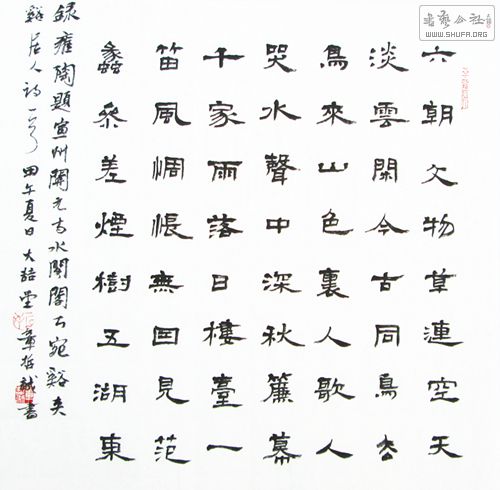 書藝公社
WWW.SHUFA.ORG
六朝文物草連空天
淡雲閑今古同鳥去
鳥來山色裏人歌人
哭水聲中深秋簾幕
千家雨落日樓臺一
笛風惆悵無因見范
蠡參差煙樹五湖東
錄雍陶題宣州開元寺水閣閣下宛谿夾
谿居人詩一首 甲午夏日 大喆堂 章書